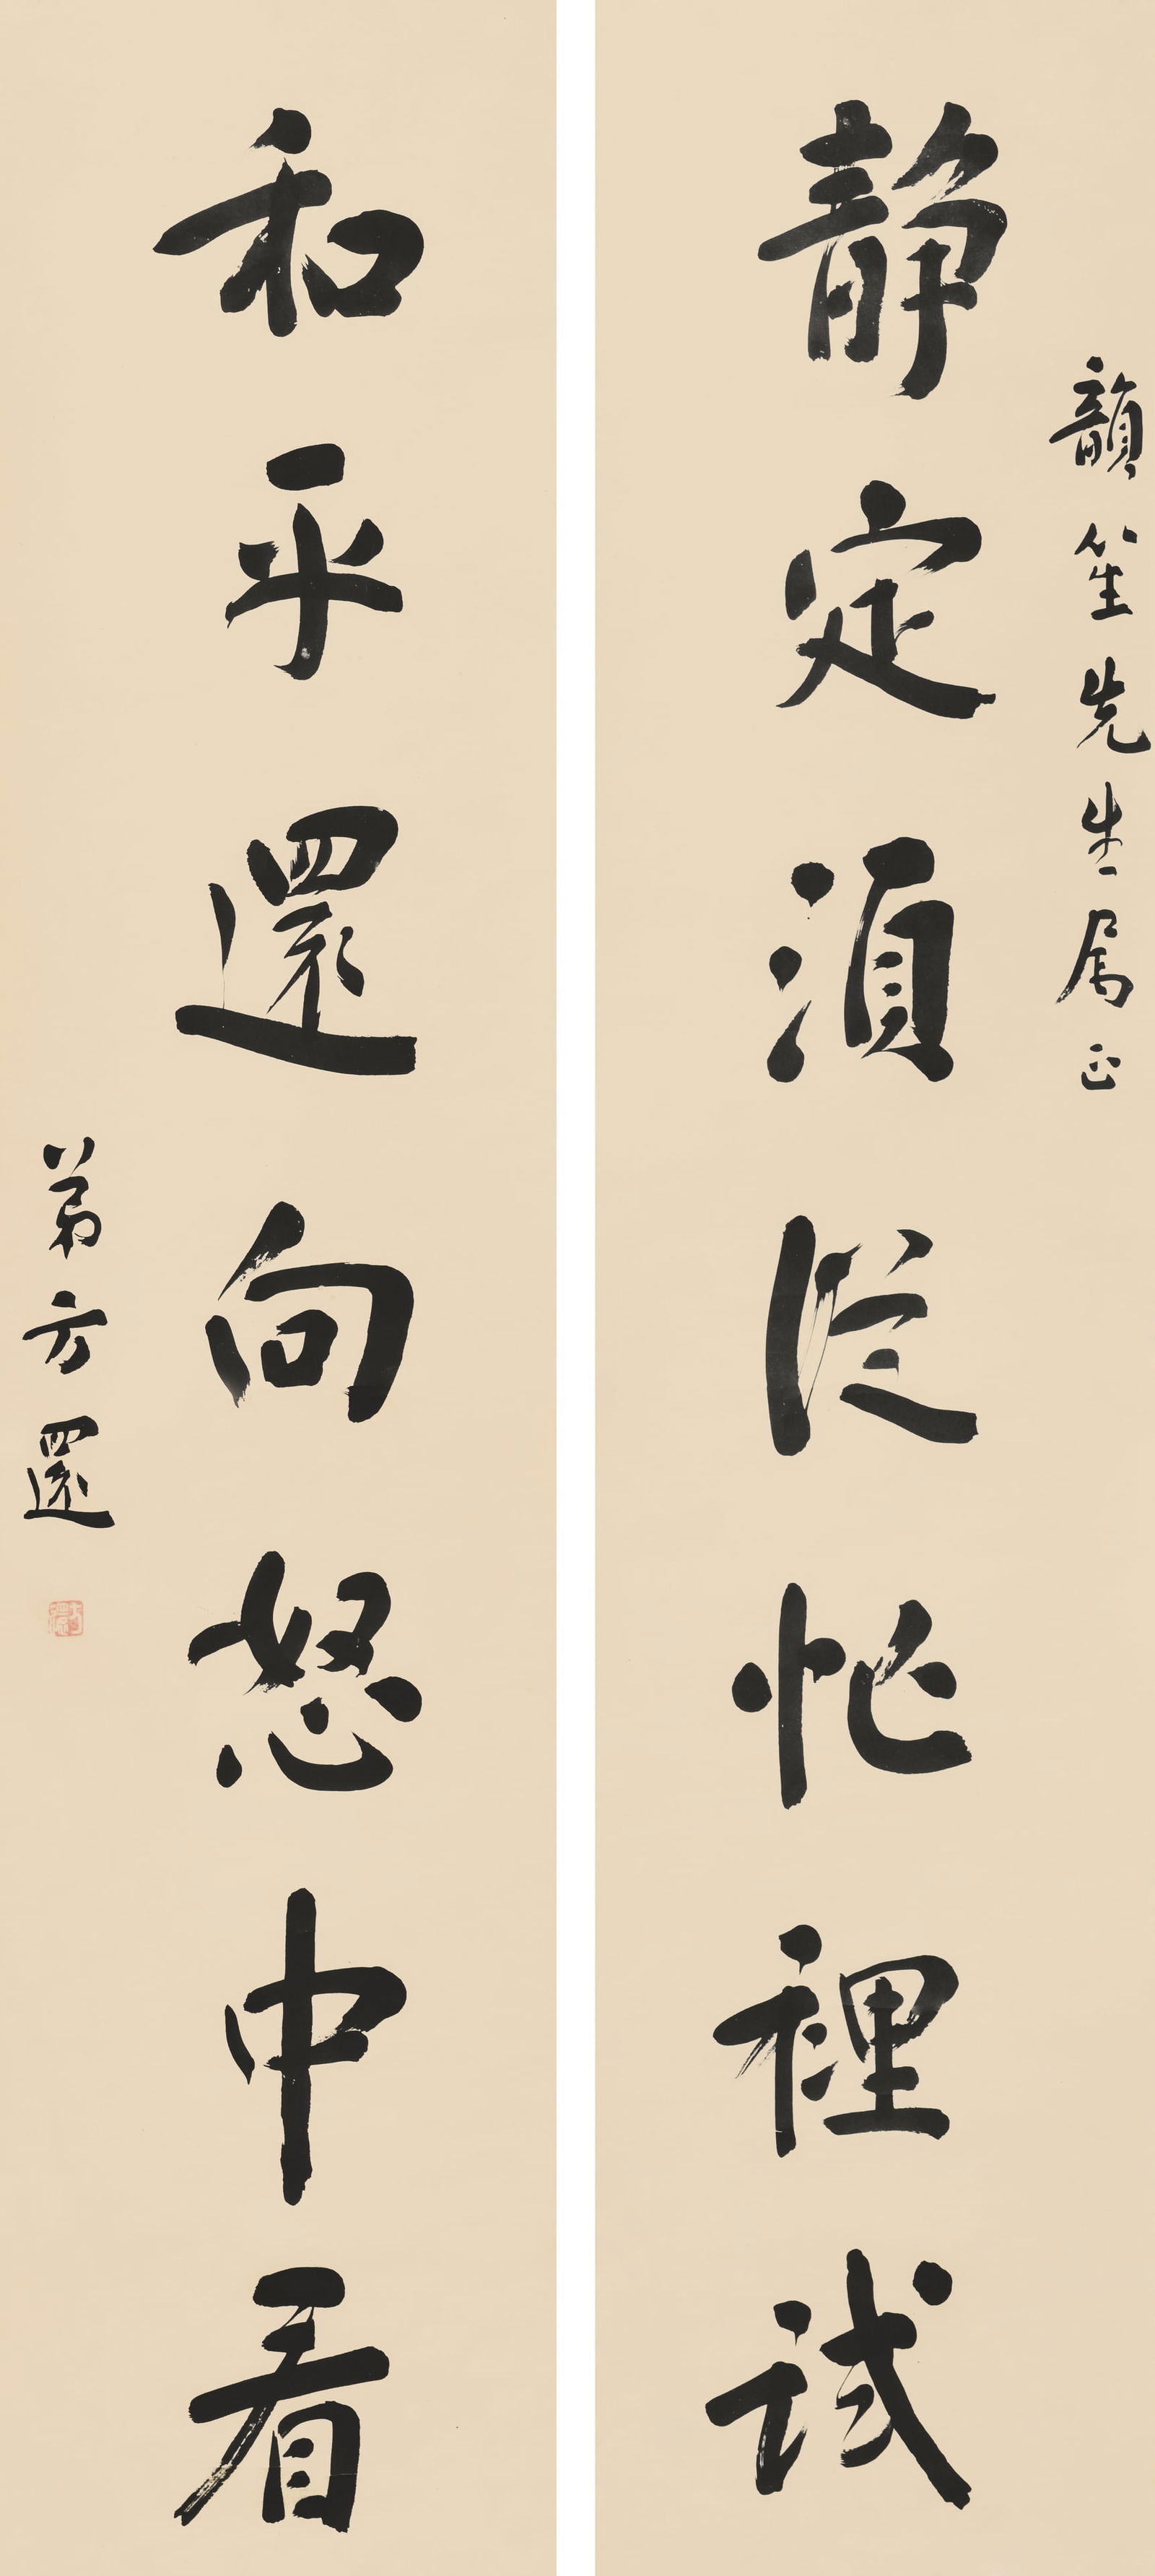 韻笙先生属正
静定須從忙裡試
和平還向怒中看
弟方還